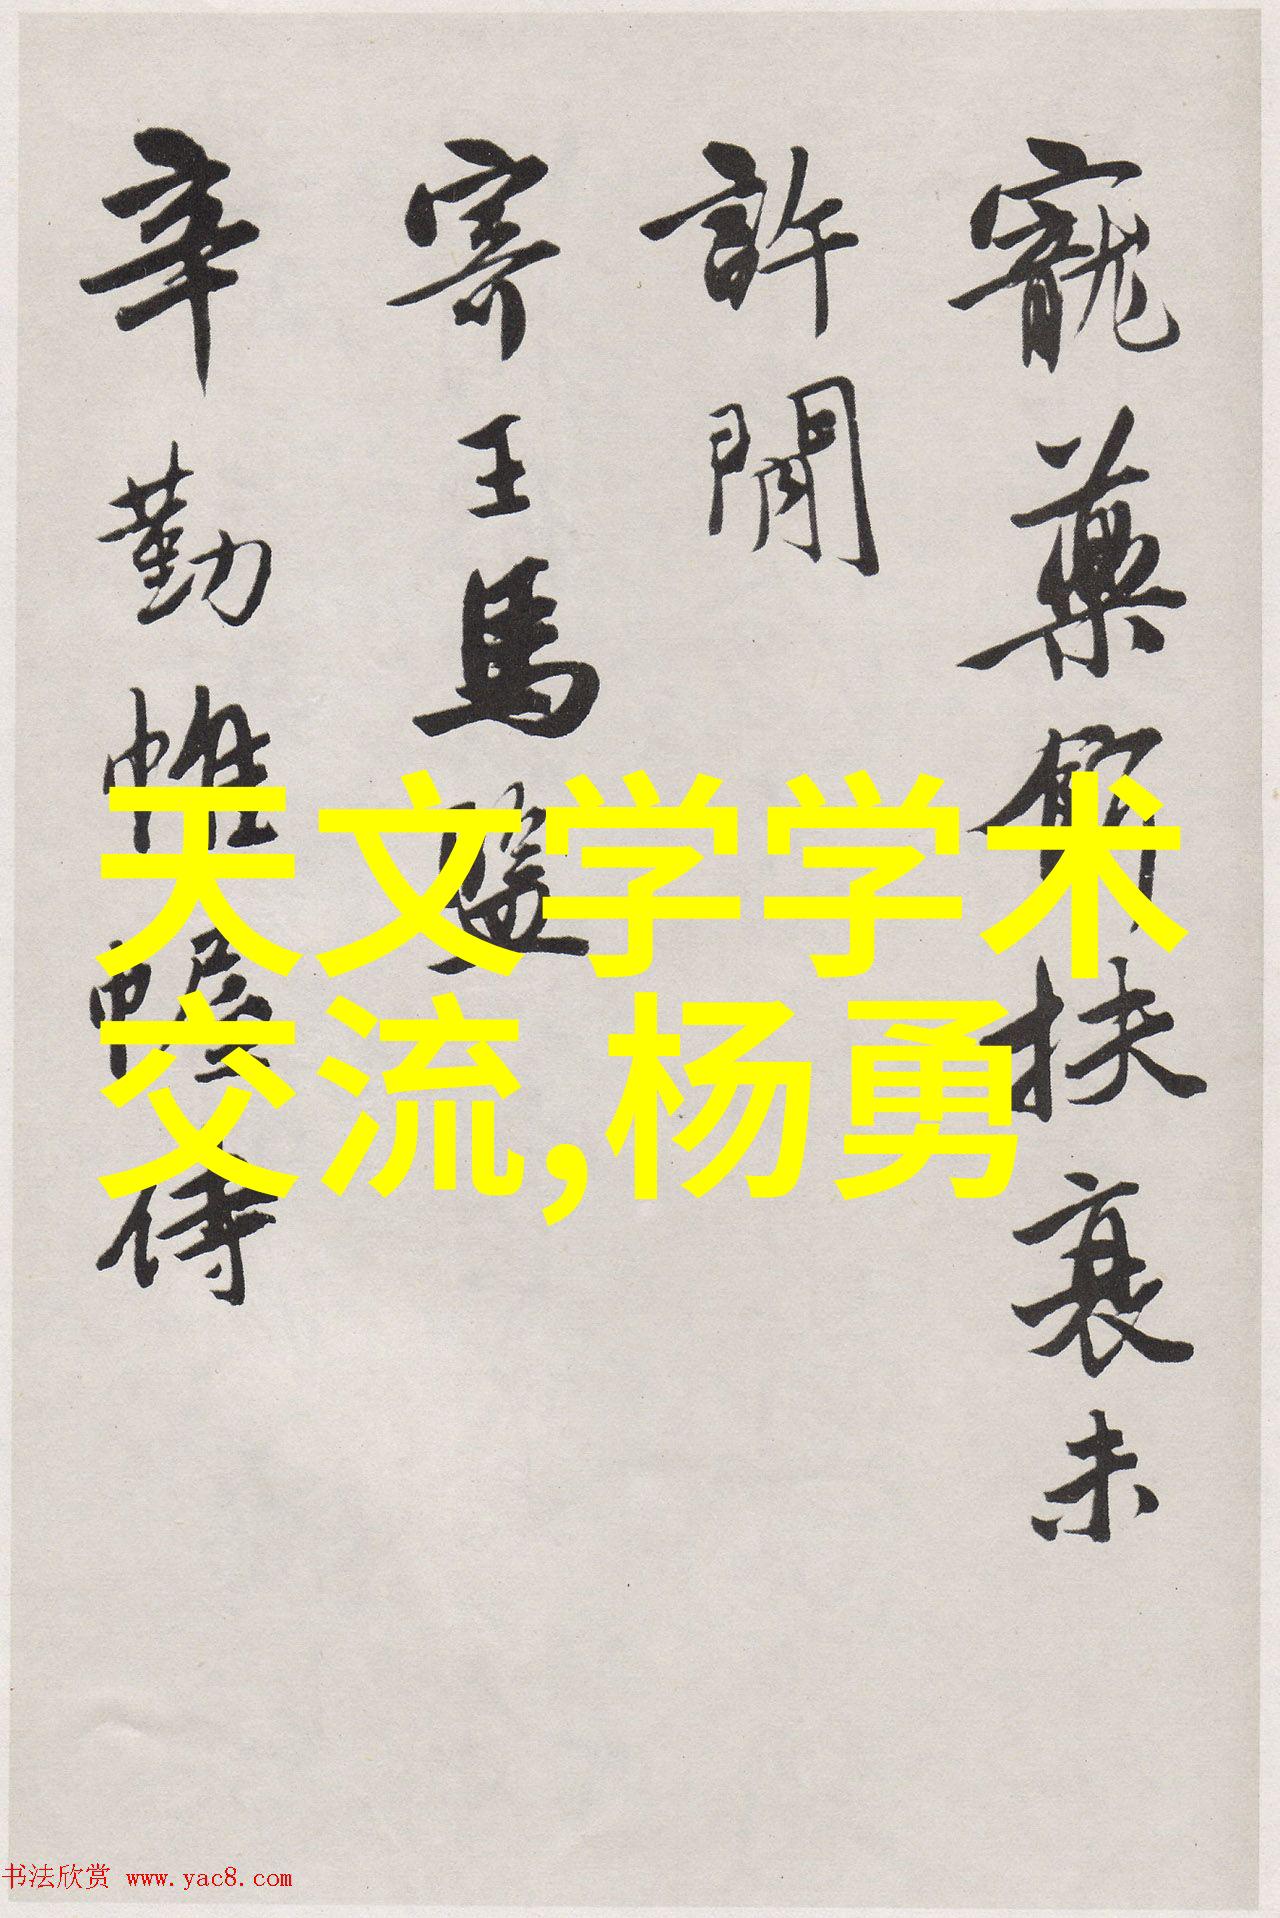 寵藥扶衰未
許閒
寄王馬監
辛勤帷幄侍
天文学学术
交流,杨勇
书法欣赏 www.yac8.com